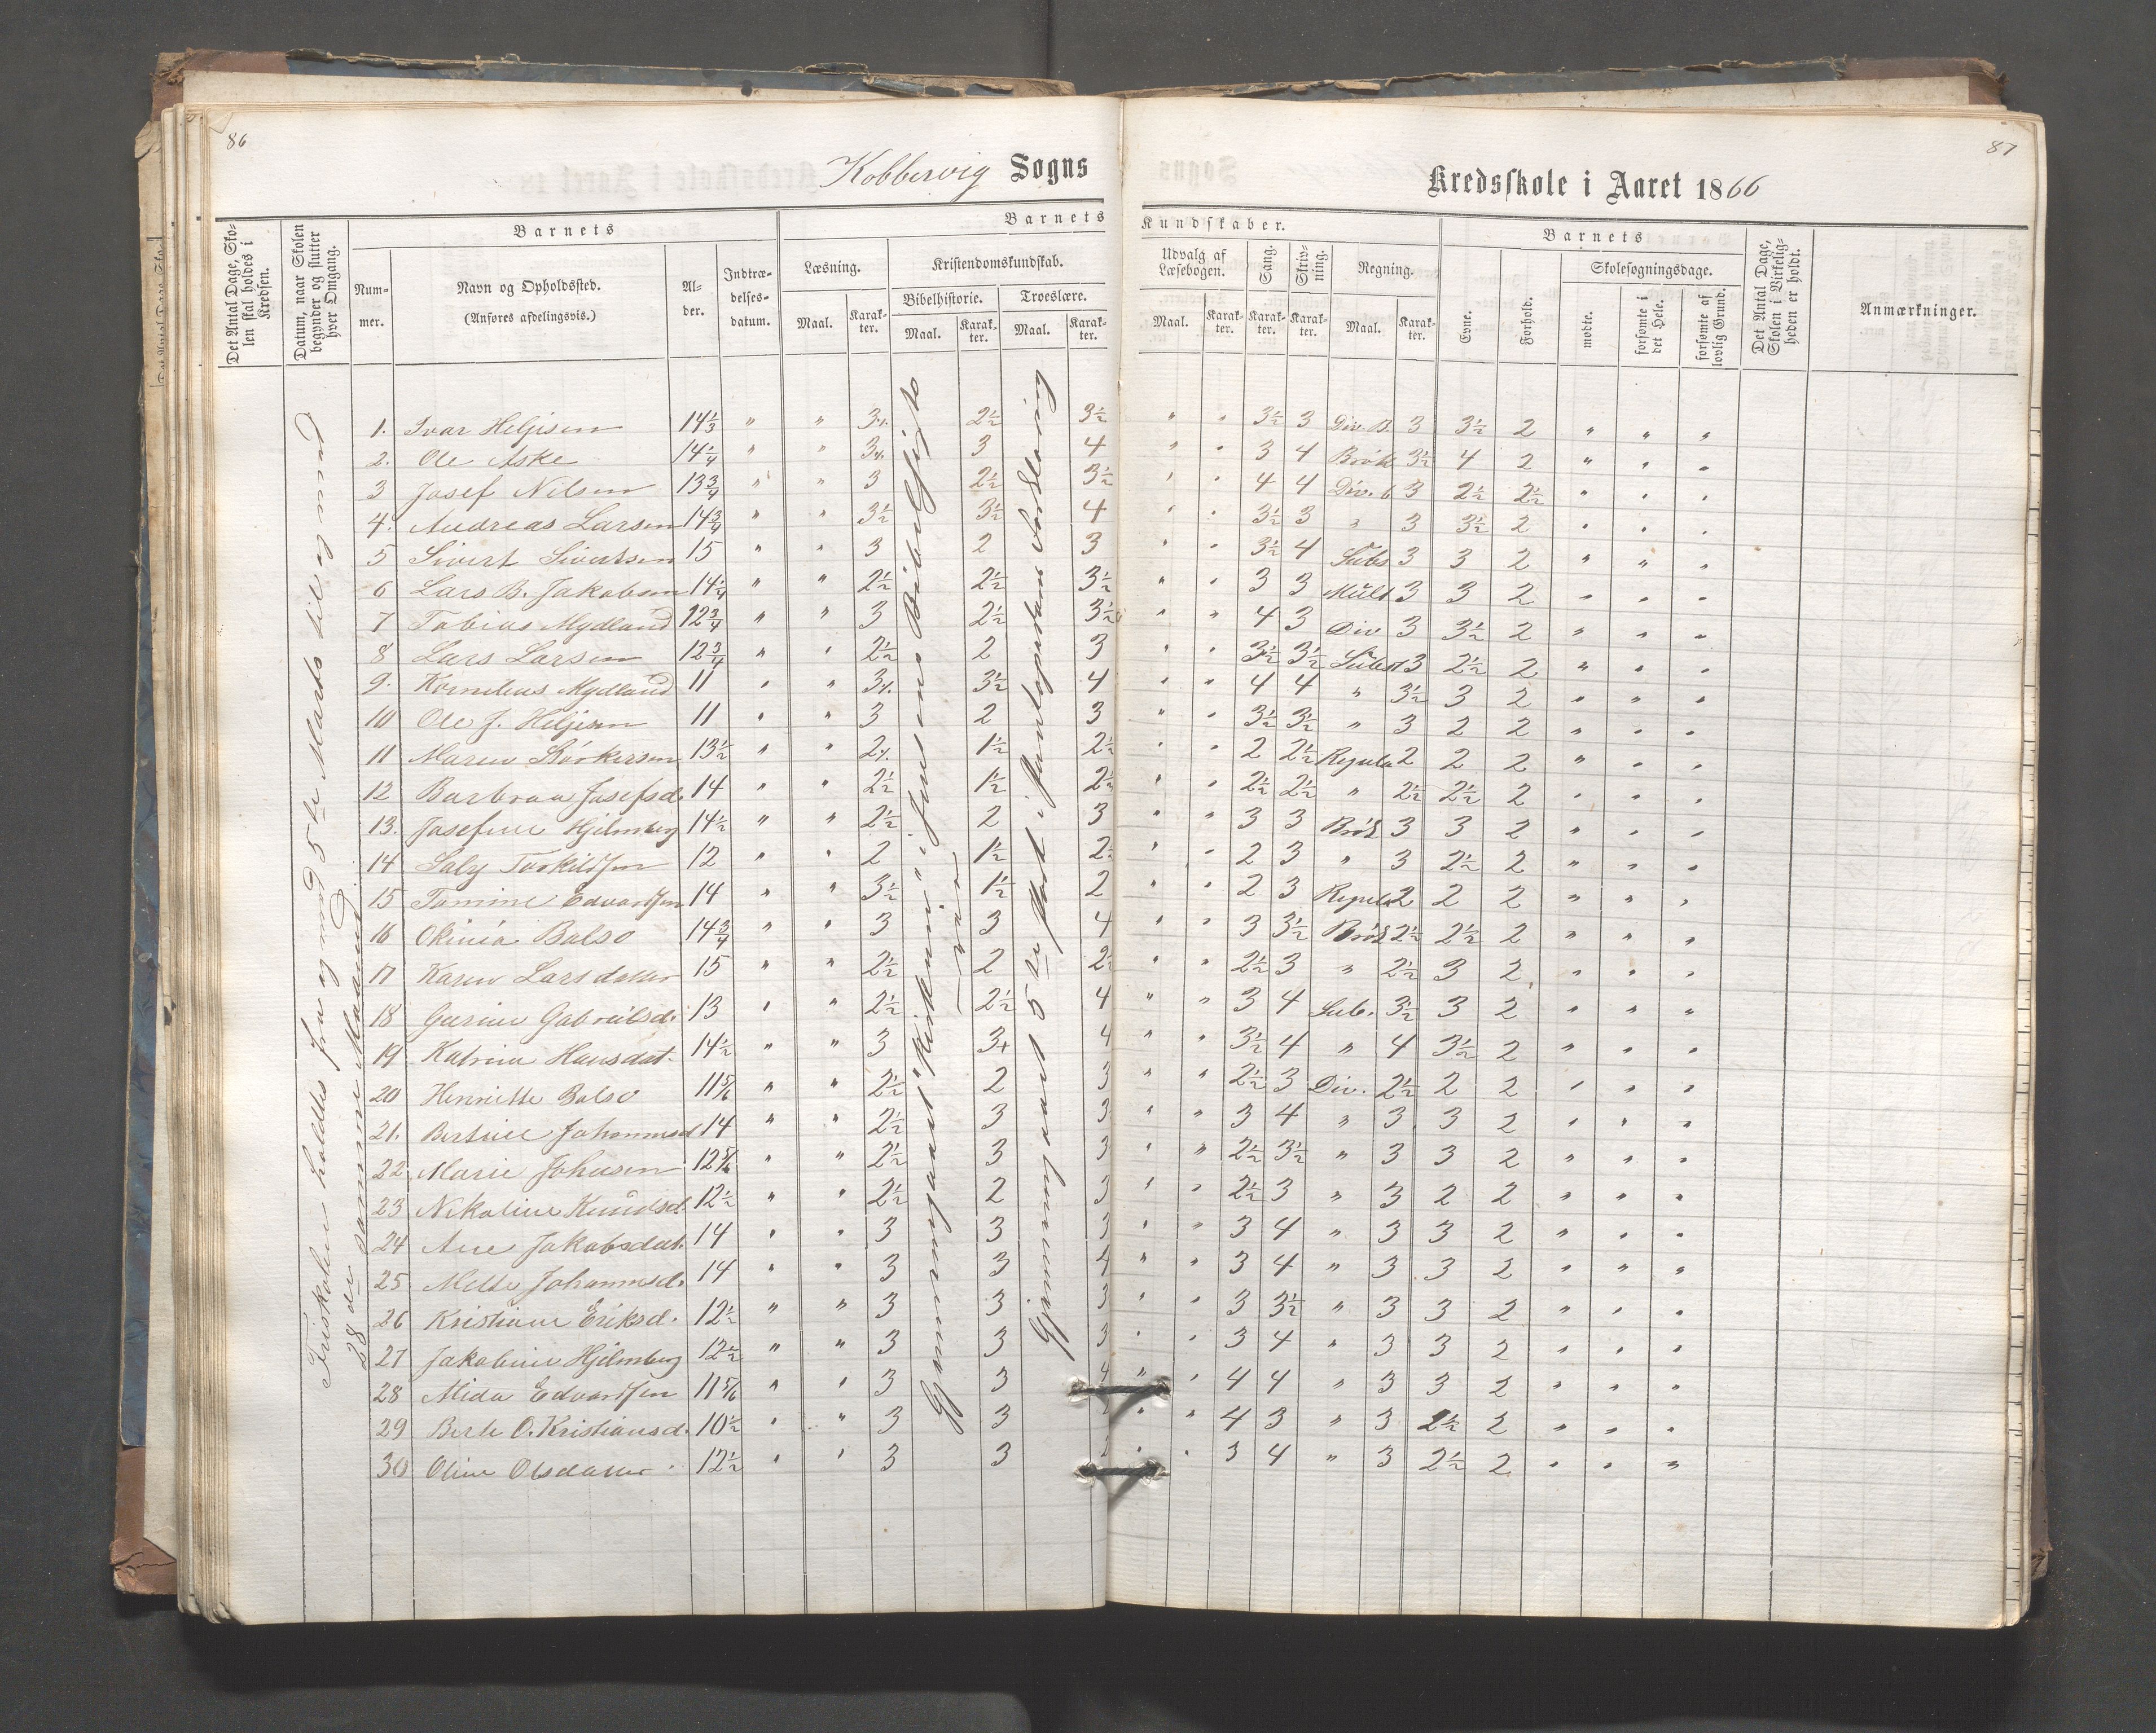 86
87
Kobbervig Sogns
Kredsskole i Aaret 1866
Det Antal Dage, Skolen skal holdes i Kredsen.
Datum, naar Skolen begynder og slutter hver Omgang.
Barnets
Nummer.
Navn og Opholdssted.
(Anføres afdelingsvis.)
Alder.
Indtrædelsesdatum.
Barnets Kundskaber.
Læsning.
Maal.
Karakter.
Kristendomskundskab.
Bibelhistorie.
Maal.
Karakter.
Troeslære.
Maal.
Karakter.
Udvalg af Læsebogen.
Maal.
Karakter.
Sang.
Karakter.
Skrivning.
Karakter.
Regning.
Maal.
Karakter.
Barnets
Evne.
Forhold.
Skolesøgningsdage.
mødte.
forsømte i det Hele.
forsømte af lovlig Grund.
Det Antal Dage, Skolen i Virkeligheden er holdt.
Anmærkninger.
Friskolen holdtes fra og med 5te Marts til og med
28de samme Maaned.
1. Ivar Heljesen 14 1/3 " " 3 1/. 2 1/2 3 1/2 " " 3 1/2 3 Div. B. 3 3 1/2 2 " " "
2. Ole Aske 14 1/4 " " 3 1/. 3 4 " " 3 4 Brøk 3 1/2 4 2 " " "
3 Josef Nilsen 13 3/4 " " 3 2 1/2 3 1/2 " " 4 4 Div. b 3 2 1/2 2 1/2 " " "
4. Andreas Larsen 14 3/4 " " 3 1/2 3 1/2 4 " " 3 1/2 3 " 3 3 1/2 2 " " "
5 Sivert Sivertsen 15 " " 3 2 3 " " 3 1/2 4 Subs 3 3 2 " " "
6 Lars B. Jakobsen 14 1/4 " " 2 1/2 2 1/2 3 1/2 " " 3 3 Mult 3 3 2 " " "
7 Tobias Mydland 12 3/4 " " 3 2 1/2 3 1/2 " " 4 3 Div 3 3 1/2 2 " " "
8 Lars Larsen 12 3/4 " " 2 1/2 2 3 " " 3 1/2 3 1/2 Subst 3 2 1/2 2 " " "
9. Kornelius Mydland 11 " " 3 1/. 3 1/2 4 " " 4 4 " 3 1/2 3 2 " " "
10 Ole J. Heljesen 11 " " 3 2 3 " " 3 1/2 3 1/2 " 3 2 2 " " "
11 Maren 13 1/2 " " 2 1/. 1 1/2 2 1/2 " " 2 2 1/2 Regula 2 2 2 " " "
12 Barbraa Josefsd. 14 " " 2 1/2 1 1/2 2 1/2 " " 2 1/2 2 1/2 " 2 1/2 2 1/2 2 " " "
13. Josefine Hjelmberg 14 1/2 " " 2 1/2 2 3 " " 3 3 Brøk 3 3 2 " " "
14 Saly Torkildsen 12 " " 2 1 1/2 2 1/2 " " 2 3 " 3 2 1/2 2 " " "
15 Tomine Edvardsen 14 " " 3 1/2 1 1/2 2 " " 2 3 Regula 2 2 2 " " "
16 Okinia Balso 14 3/4 " " 3 3 4 " " 3 3 1/2 Brøk 2 1/2 2 1/2 2 " " "
17 Karen Larsdatter 15 " " 2 1/2 2 2 1/2 " " 2 1/2 3 " 2 1/2 3 2 " " "
18 Gurine Gabrielsd. 13 " " 2 1/2 2 1/2 4 " " 3 4 Sub. 3 1/2 3 2 " " "
19 Katrina Hansdat. 14 1/2 " " 3 3+ 4 " " 3 1/2 4 " 4 3 1/2 2 " " "
20 Henriette Balso 11 5/6 " " 2 1/2 2 3 " " 2 1/2 3 Div. 2 1/2 2 2 " " "
21. Bertine Johannesd 14 " " 2 1/2 3 3 " " 3 4 " 3 3 2 " " "
22 Marie Johnsen 12 5/6 " " 2 1/2 3 3 " " 2 1/2 3 1/2 " 3 3 2 " " "
23 Nikoline Knudsd. 12 1/2 " " 2 1/2 2 3 " " 2 1/2 3 " 3 2 2 " " "
24 Ane Jakobsdat. 14 " " 3 3 3 " " 3 4 " 3 3 2 " " "
25 Mette Johannesd. 14 " " 3 3 4 " " 3 4 " 3 3 2 " " "
26 Kristiane Eriksd. 12 1/2 " " 3 3 3 " " 3 3 1/2 " 3 3 2 " " "
27 Jakobine Hjelmberg 12 1/2 " " 3 3 3 " " 3 4 " 3 3 2 " " "
28 Mida Edvardsen 11 5/6 " " 3 3 4 " " 4 4 " 3 3 2 " " "
29 Berte O. Kristiansd. 10 1/2 " " 3 3 " " 4 3 " 3 2 1/2 2 " " "
30 Oline Olsdatter 12 1/2 " " 3 3 " " 3 4 " 3 2 1/2 2 " " "
Gjennemgaaet "Kirkens" i Jensens Bibelhistorie
Gjennemgaaet 5te Part i Pontoppidans Forklaring